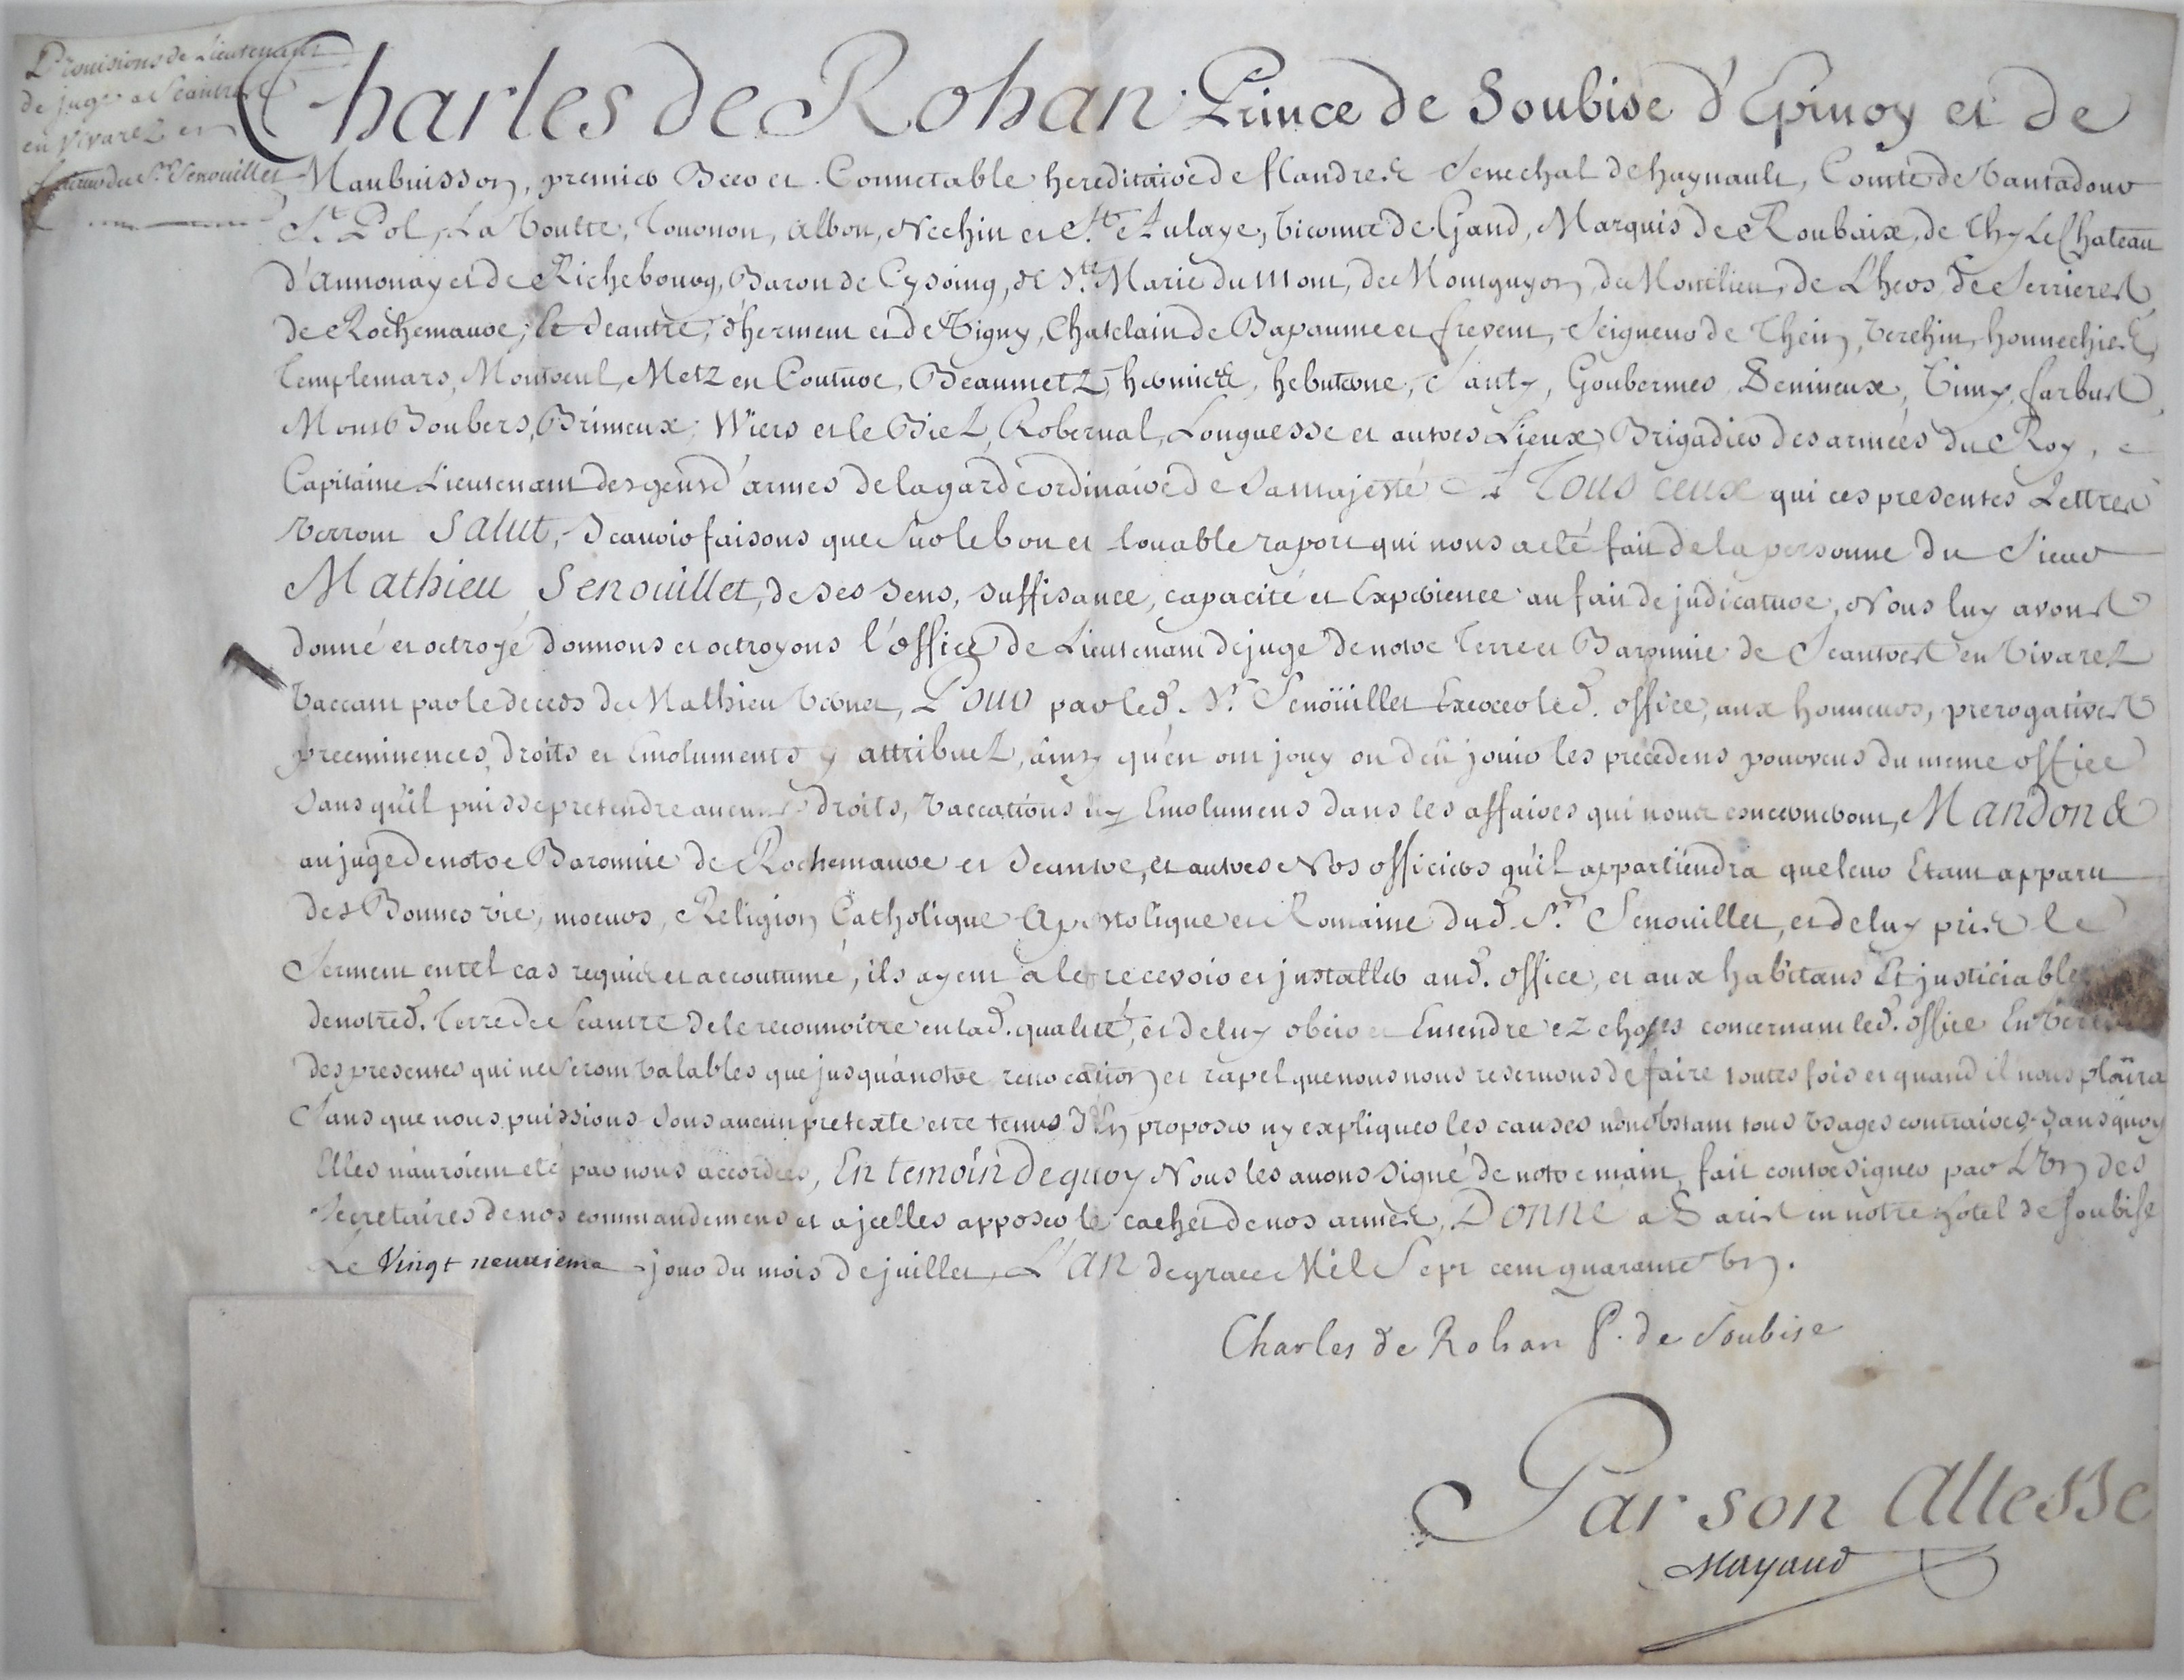 Provisions de Lieutenant
de juge a Sceautres
en Vivarez en
faveur du Sr. Senouillet
Charles de Rohan Prince de Soubise d'Epinoy et de
Maubuisson, premier Beer et Connetable hereditaire de flandres Senechal de haynault, Comte de Vantadour
St. Pol, La Voulte, Tournon, Albon, Nechin et Ste. Aulaye, Viconte de Gand, Marquis de Roubaix, de Thy Le Chateau
d'Annonay et de Richebourg, Baron de Cysoing, de Ste. Marie du Mont, de Montguyon, de Montlieu, de L'hers de Serrieres
de Rochemaure, de Sceautre, d'herment et de Vigny, Chatelain de Bapaume et frevent, Seigneur de Thein, Verchin, honnechies
Templemars, Montreul, Metz en Couture, Beaumetz, hermies, hebuterne, Santy, Goubermes, Demineux, Vimy, farbus
Mont Boubers, Brimeux, Wiers et le Biez, Robernal, Longuesse et autres Lieux, Brigadier des armées du Roy,
Capitaine Lieutenant des gens d'armes de la garde ordinaire de Sa majesté, A Tous ceux qui ces presentes Lettres
Verront Salut, Scavoir faisons que Sur le bon et louable raport qui nous a eté fait de la personne du Sieur
Mathieu Senouillet, de ses sens, suffisance, capacité et Experience au fait de judicature, Nous luy avons
donné et octroyé donnons et octroyons l'office de Lieutenant de juge de notre Terre et Baronnie de Sceautres en Vivarez
Vaccant par le deceds de Mathieu Vernet, Pour par led. Sr. Senoüillet Exercer led. office, aux honneurs, prerogatives
preeminences, droits et Emoluments y attribuez, ainsy qu'en ont jouy ou deü jouir les précedens pourveus du meme office
Sans qu'il puisse pretendre aucuns droits, vaccations ny Emolumens dans les affaires qui nous concerneront, Mandons
au juge de notre Baronnie de Rochemaure et Sceautre, et autres Nos officiers qu'il appartiendra que leur Etant apparu
des Bonnes vie, moeurs, Religion Catholique Apostolique et Romaine dud. Sr. Senouillet, et de luy pris le
Serment en tel cas requis et accoutumé, ils ayent a le recevoir et installer aud. office, et aux habitans Et justiciables
de notred. Terre de Sceautre de le reconnoitre en lad. qualité, et de luy obeir et Entendre ez choses concernant led. office En vertu
des presentes qui ne Seront valables que jusqu'à notre revocation et rapel que nous nous reservons de faire toutes fois et quand il nous plaira
Sans que nous puissions Sous aucun pretexte etre tenus d'En proposer ny expliquer les causes nonobstant tous usages contraires, Sans quoy
Elles n'auroient eté par nous accordées, En temoin de quoy Nous les avons Signé de notre main, fait contresigner par L'Un des
Secretaires de nos commandemens et a jcelles apposer le cachet de nos armes, Donné a Paris en notre hotel de Soubise
Le Vingt neuvieme jour du mois de juillet, L'An de grace Mil Sept cent quarante Un.
Charles de Rohan P. de Soubise
Par son Altesse
Mayaud